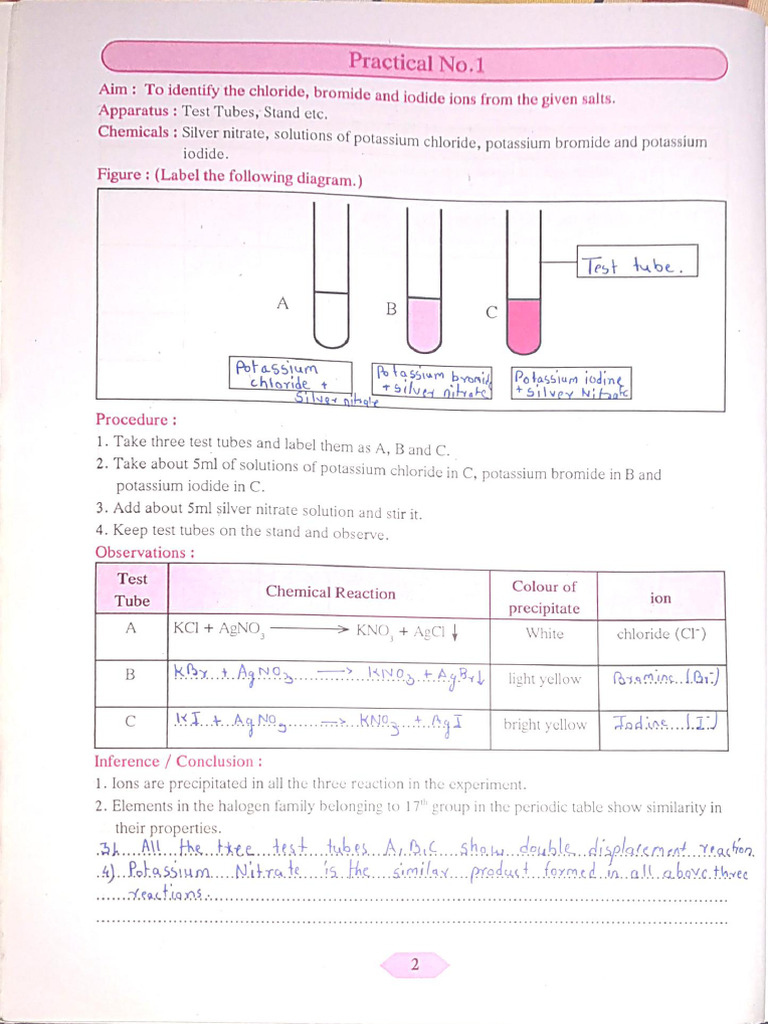 Practical No.1
Aim : To identify the chloride, bromide and iodide ions from the given salts.
Apparatus : Test Tubes, Stand etc.
Chemicals : Silver nitrate, solutions of potassium chloride, potassium bromide and potassium
iodide.
Figure : (Label the following diagram.)
Test tube.
A
B
C
Potassium
chloride +
Silver nitrate
Potassium bromide
+ silver nitrate
Potassium iodine
+ Silver Nitrate
Procedure :
1. Take three test tubes and label them as A, B and C.
2. Take about 5ml of solutions of potassium chloride in C, potassium bromide in B and
potassium iodide in C.
3. Add about 5ml silver nitrate solution and stir it.
4. Keep test tubes on the stand and observe.
Observations :
Test Tube Chemical Reaction Colour of precipitate ion
A KCl + AgNO₃ ⟶ KNO₃ + AgCl ↓ White chloride (Cl⁻)
B KBr + AgNO₃ ⟶ KNO₃ + AgBr↓ light yellow Bromine (Br⁻)
C KI + AgNO₃ ⟶ KNO₃ + AgI bright yellow Iodine (I⁻)
Inference / Conclusion :
1. Ions are precipitated in all the three reaction in the experiment.
2. Elements in the halogen family belonging to 17th group in the periodic table show similarity in
their properties.
3) All the three test tubes A,B,C show double displacement reaction.
4) Potassium Nitrate is the similar product formed in all above three
reactions.
2